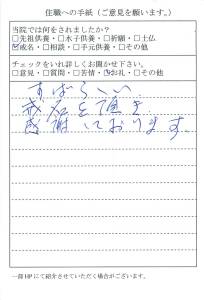 住職への手紙（ご意見を願います。）
当院では何をされましたか？
□先祖供養・□水子供養・□祈願・□土仏
☑戒名・□相談・□手元供養・□その他
チェックをいれ詳しくお聞かせ下さい。
□意見・□質問・□苦情・☑お礼・□その他
すばらしい
戒名を頂き
感謝しております。
一部HPにて紹介させていただく場合がございます。